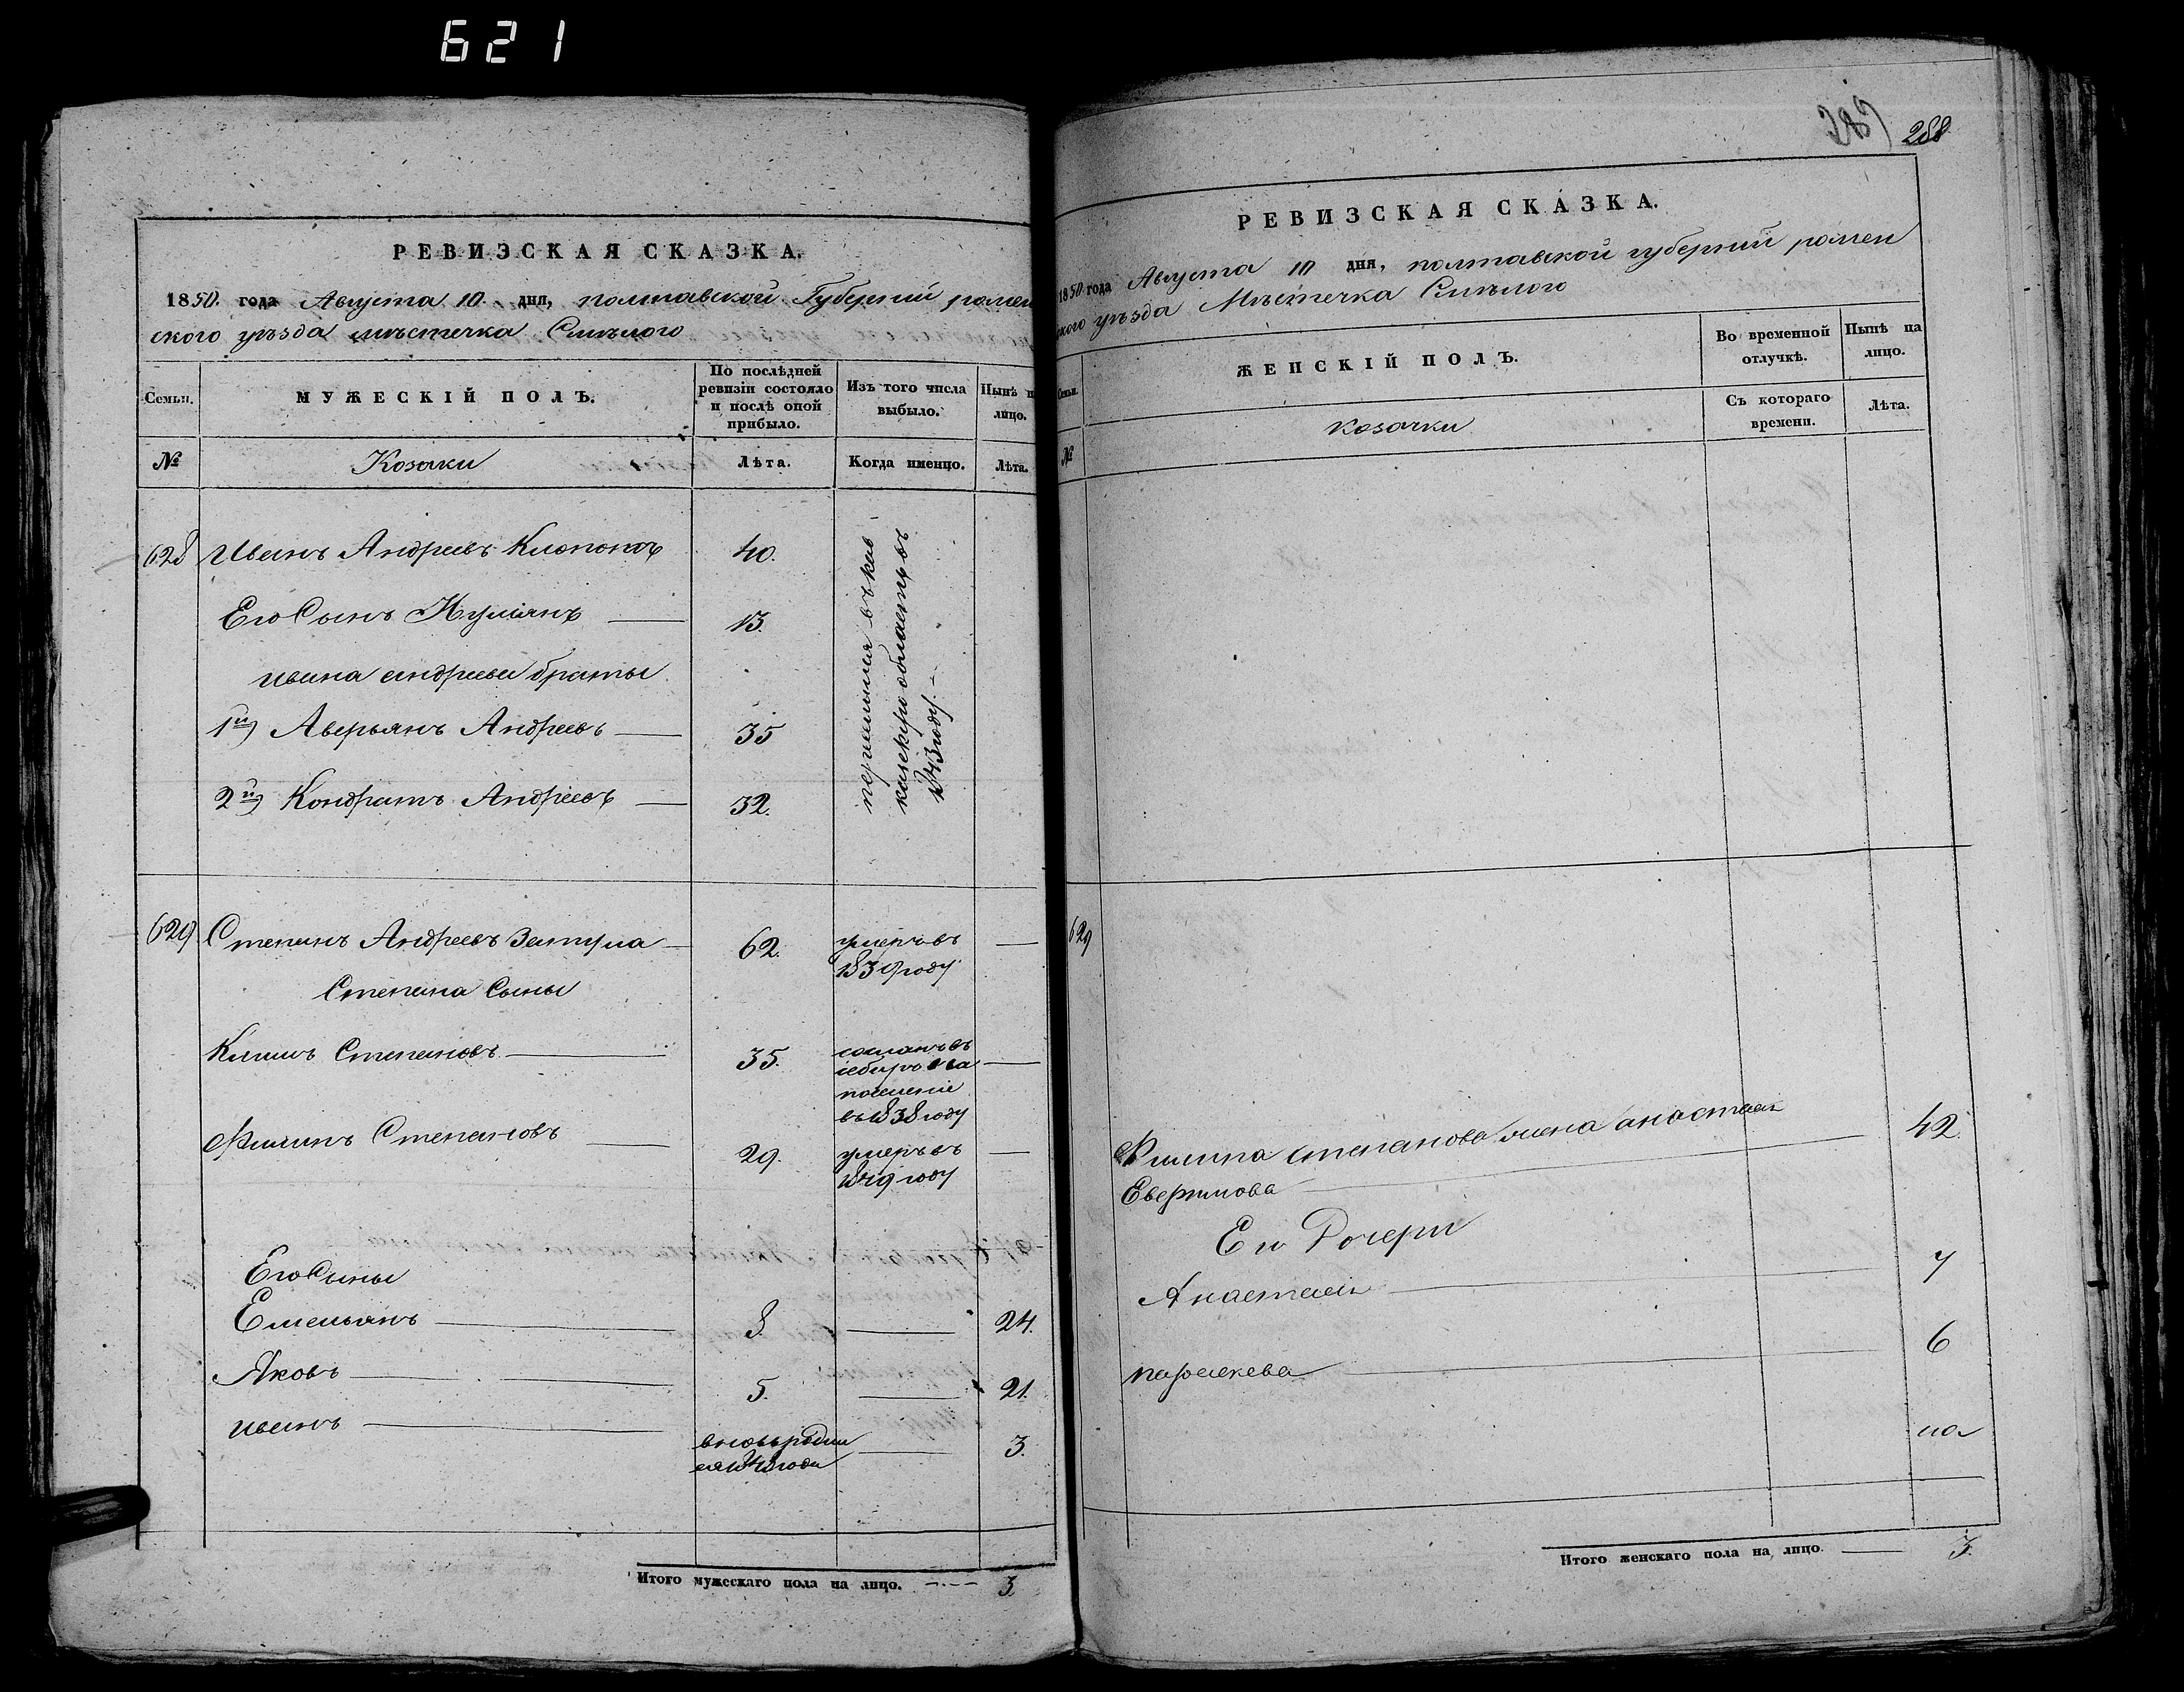 621
РЕВИЗСКАЯ СКАЗКА.
1850. года Августа 10. дня, полтавской Губерний ромен
ского уѣзда мѣстечка Смѣлого
Семьи.
МУЖЕСКІЙ ПОЛЪ.
По послѣдней
ревизіи состояло
и послѣ оной
прибыло.
Изъ того числа
выбыло.
Нынѣ н
лицо.
№
Козаки
Лѣта.
Когда именно.
Лѣта.
628 Иванъ Андреевъ 40.
Его Сынъ 13.
ивана андреева браты
1й) Аверьянъ Андреевъ 35
2й) Кондратъ Андреевъ 32.
въ кав
казскую область въ
1843 году.
629 Степанъ Андреевъ 62. умеръ въ
1839 году
Степана Сыны
Климъ Степановъ 35. сосланъ въ
на
поселеніе
въ 1838 году
Филипъ Степановъ 29. умеръ въ
1849 году
Его Сыны
Емельянъ 8. 24.
Яковъ 5. 21.
иванъ вновь родил
ся 1848 года 3.
Итого мужескаго пола на лицо. 3.
287 288
РЕВИЗСКАЯ СКАЗКА.
1850 года Августа 10 дня, полтавской губерний ромен
ского уѣзда Мѣстечка Смѣлого
Семьи.
ЖЕНСКІЙ ПОЛЪ.
Во временной
отлучкѣ.
Нынѣ на
лицо.
№
козачки
Съ котораго
времени.
Лѣта.
629
Филипа степанова жена анастасія 42.
Евфимова
Его Дочери
Анастасія 7
параскева 6
Итого женскаго пола на лицо. 3.